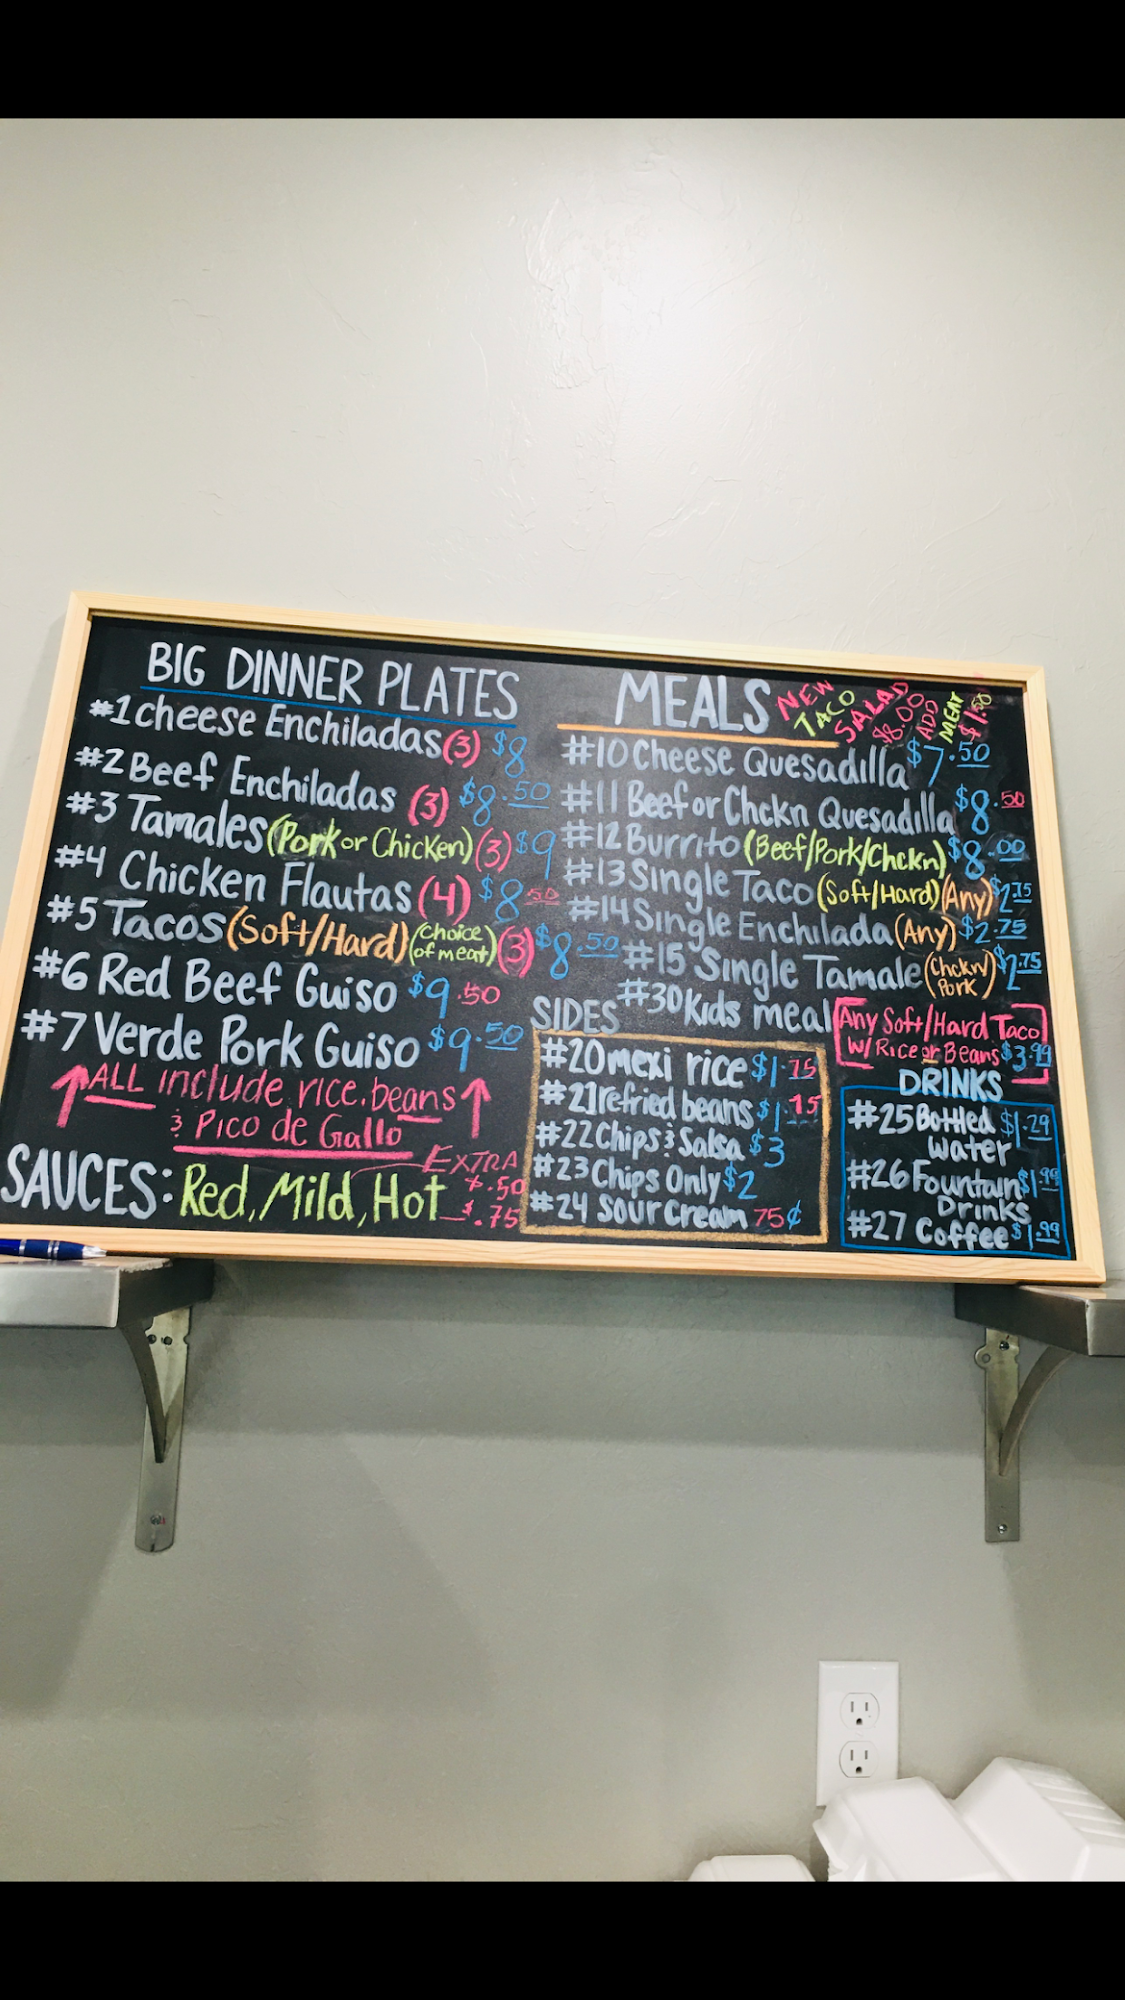 BIG DINNER PLATES
#1 cheese Enchiladas (3) $8
#2 Beef Enchiladas (3) $8.50
#3 Tamales (Pork or Chicken) (3) $9
#4 Chicken Flautas (4) $8.50
#5 Tacos (Soft/Hard) (choice of meat) (3) $8.50
#6 Red Beef Guiso $9.50
#7 Verde Pork Guiso $9.50
ALL include rice, beans
& Pico de Gallo
SAUCES: Red, Mild, Hot
EXTRA
$.50
$.75
MEALS
NEW
TACO
SALAD
$8.00
ADD
MEAT
#10 Cheese Quesadilla $7.50
#11 Beef or Chckn Quesadilla $8.50
#12 Burrito (Beef/Pork/Chckn) $8.00
#13 Single Taco (Soft/Hard) (Any) $2.75
#14 Single Enchilada (Any) $2.75
#15 Single Tamale (Chckn/Pork) $2.75
#30 Kids meal
Any Soft/Hard Taco
W/Rice or Beans $3.99
SIDES
#20 mexi rice $1.75
#21 refried beans $1.75
#22 Chips & Salsa $3
#23 Chips Only $2
#24 Sour cream 75¢
DRINKS
#25 Bottled Water $1.29
#26 Fountain Drinks $1.99
#27 Coffee $1.99